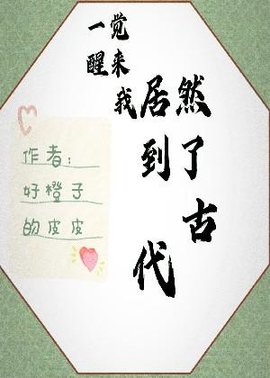 一觉
醒来
我居然
到了
古
代
作者：
好橙子
的皮皮